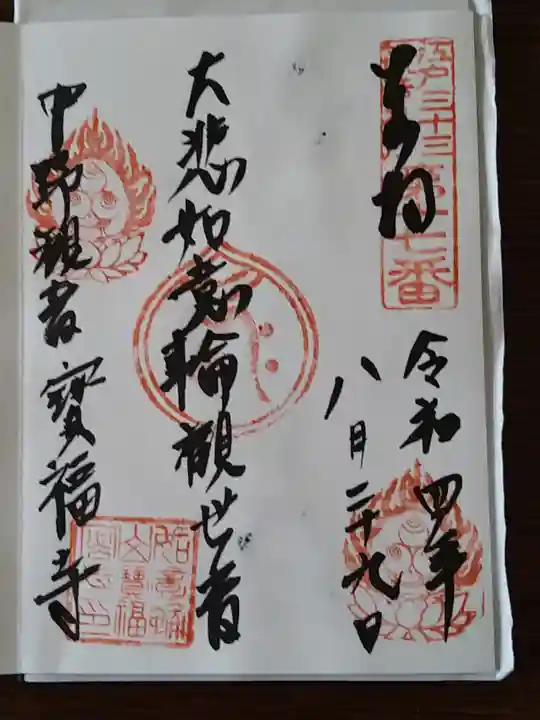 奉拝
江戸三十三第十七番
令和四年
八月二十九日
大悲如意輪観世音
中野観音 寳福寺